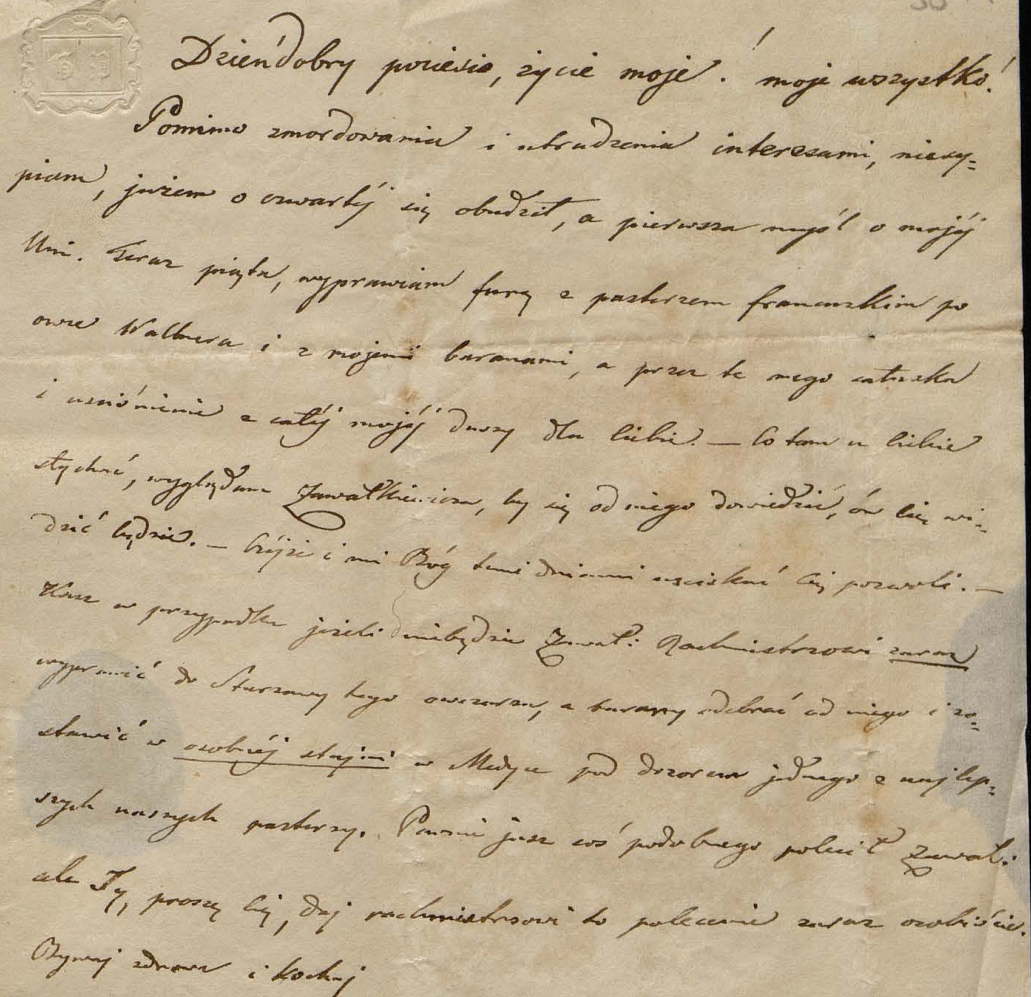 Dzieńdobry pociecho, życie moje! moje wszystko!
Pomimo zmordowania i utrudzenia interesami, niesy-
piam, jużem o czwartéj się obudził, a pierwsza myśl o mojéj
Uni. Teraz piąta, wyprawiam furę z pasterzem francuzkim po
owce Wallnera i z mojemi baranami, a przez te mego całuska
i uściśnienie z całéj mojéj duszy dla Ciebie. — Co tam u Ciebie
słychać, wyglądam Zawałkiewicza, by się od niego dowiedzić, on Cię wi-
dzić będzie. — Czyże i mi Bóg temi dniami uściskać Cię pozwoli. —
Karz w przypadku jeżeli niebędzie Zawał: Rachmistrzowi zaraz
wyprawić do Starzawy tego owczarza, a barany odebrać od niego i zo-
stawić w osobnéj stajni w Medyce pod dozorem jednego z najlep-
szych naszych pasterzy. Pewnie już coś podobnego polecił Zawał:
ale Ty, proszę Cię, daj rachmistrzowi to polecenie zaraz osobiście.
Bywaj zdrowa i kochaj